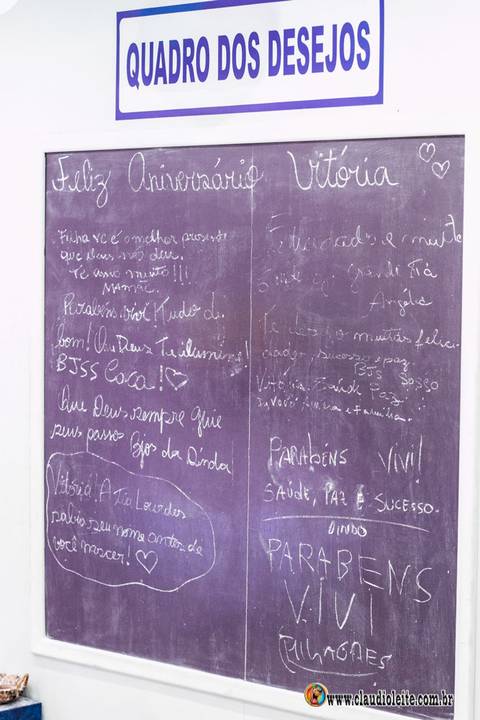 QUADRO DOS DESEJOS
Feliz Aniversário Vitória
Filha vc é o melhor presente
que Deus nos deu.
Te amo muito!!!
Mamãe.
Parabens vivi! Tudo de
bom! Que Deus Te ilumine!
BJSS Caca!
Que Deus sempre guie
seus passos Bjos da Dinda
Vitória! A Tia Lourdes
sabia seu nome antes de
você nascer!
Felicidades e muita
grande Tia
Angela
Te desejo muitas felici
dades, sucesso e paz
BJS
Vitória Saúde Paz
família.
PARABÉNS VIVI!
SAÚDE, PAZ E SUCESSO.
DINDO
PARABENS
VIVI
www.claudioleite.com.br